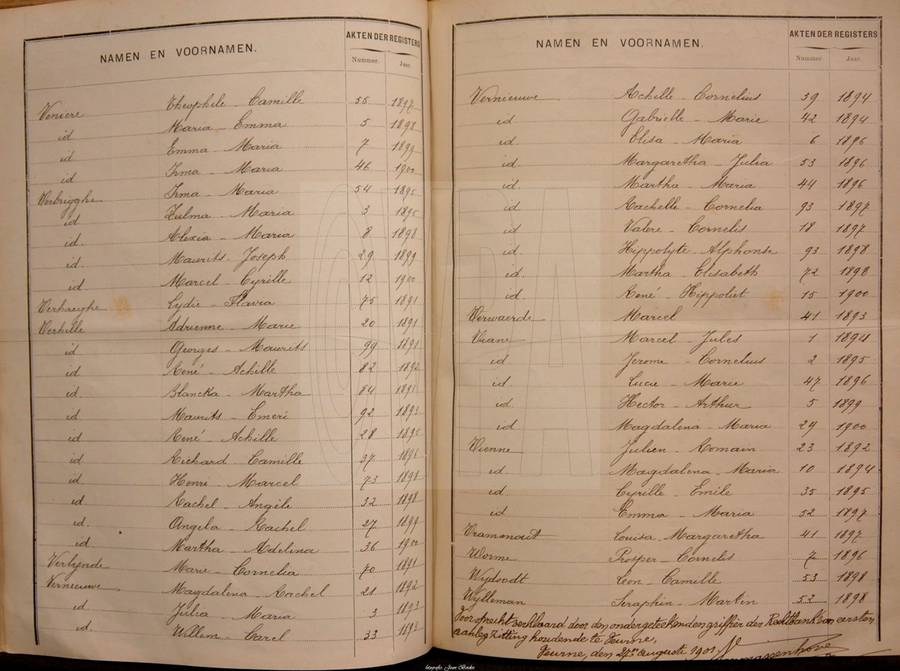 NAMEN EN VOORNAMEN. AKTEN DER REGISTERS
Nummer. Jaar.
Veniere Theophile - Camille 55 1897
id Maria - Emma 5 1898
id Emma - Maria 7 1899
id Irma - Maria 46 1900
Verbrygghe Irma - Maria 54 1895
id Zulma - Maria 3 1895
id Alexia - Maria 8 1898
id. Maurits - Joseph 29 1899
id. Marcel - Cyrille 12 1900
Verhaeghe Lydie - Flavia 75 1891
Verhille Adrienne - Marie 20 1891
id Georges - Maurits 99 1891
id René - Achille 82 1892
id Blancka - Martha 84 1893
id Maurits - Emeri 92 1893
id René - Achille 28 1895
id Richard - Camille 37 1896
id Henri - Marcel 73 1898
id Rachel - Angèle 32 1898
id. Angela - Rachel 27 1899
id Martha - Adelina 36 1900
Verlynde Marie - Cornelia 70 1891
Vernieuwe Magdalena - Rachel 21 1892
id Julia - Maria 3 1893
id. Willem - Carel 33 1893
NAMEN EN VOORNAMEN. AKTEN DER REGISTERS
Nummer. Jaar.
Vernieuwe Achille - Cornelius 39 1894
id Gabrielle - Marie 42 1894
id Elisa - Maria 6 1896
id. Margaretha - Julia 53 1896
id. Martha - Maria 44 1896
id Rachelle - Cornelia 93 1897
id Valere - Cornelis 18 1897
id. Hippolyte - Alphonse 93 1898
id Martha - Elisabeth 72 1898
id. René - Hippoliet 15 1900
Verwaerde Marcel 41 1893
Viane Marcel - Jules 1 1894
id Jerome - Cornelius 2 1895
id Lucie - Marie 47 1896
id. Hector - Arthur 5 1899
id Magdalena - Maria 24 1900
Vienne Julien - Romain 23 1892
id Magdalena - Maria 10 1894
id Cyrille - Emile 35 1895
id Emma - Maria 52 1897
Louisa - Margaretha 41 1897
Worme Prosper - Cornelis 7 1896
Wydoodt Leon - Camille 53 1898
Wylleman Seraphin - Martin 53 1898
Voor oprecht verklaard door den ondergeteekenden griffier der Rechtbank van eersten
aanleg zitting houdende te Veurne,
Veurne, den 27n augusti 1901